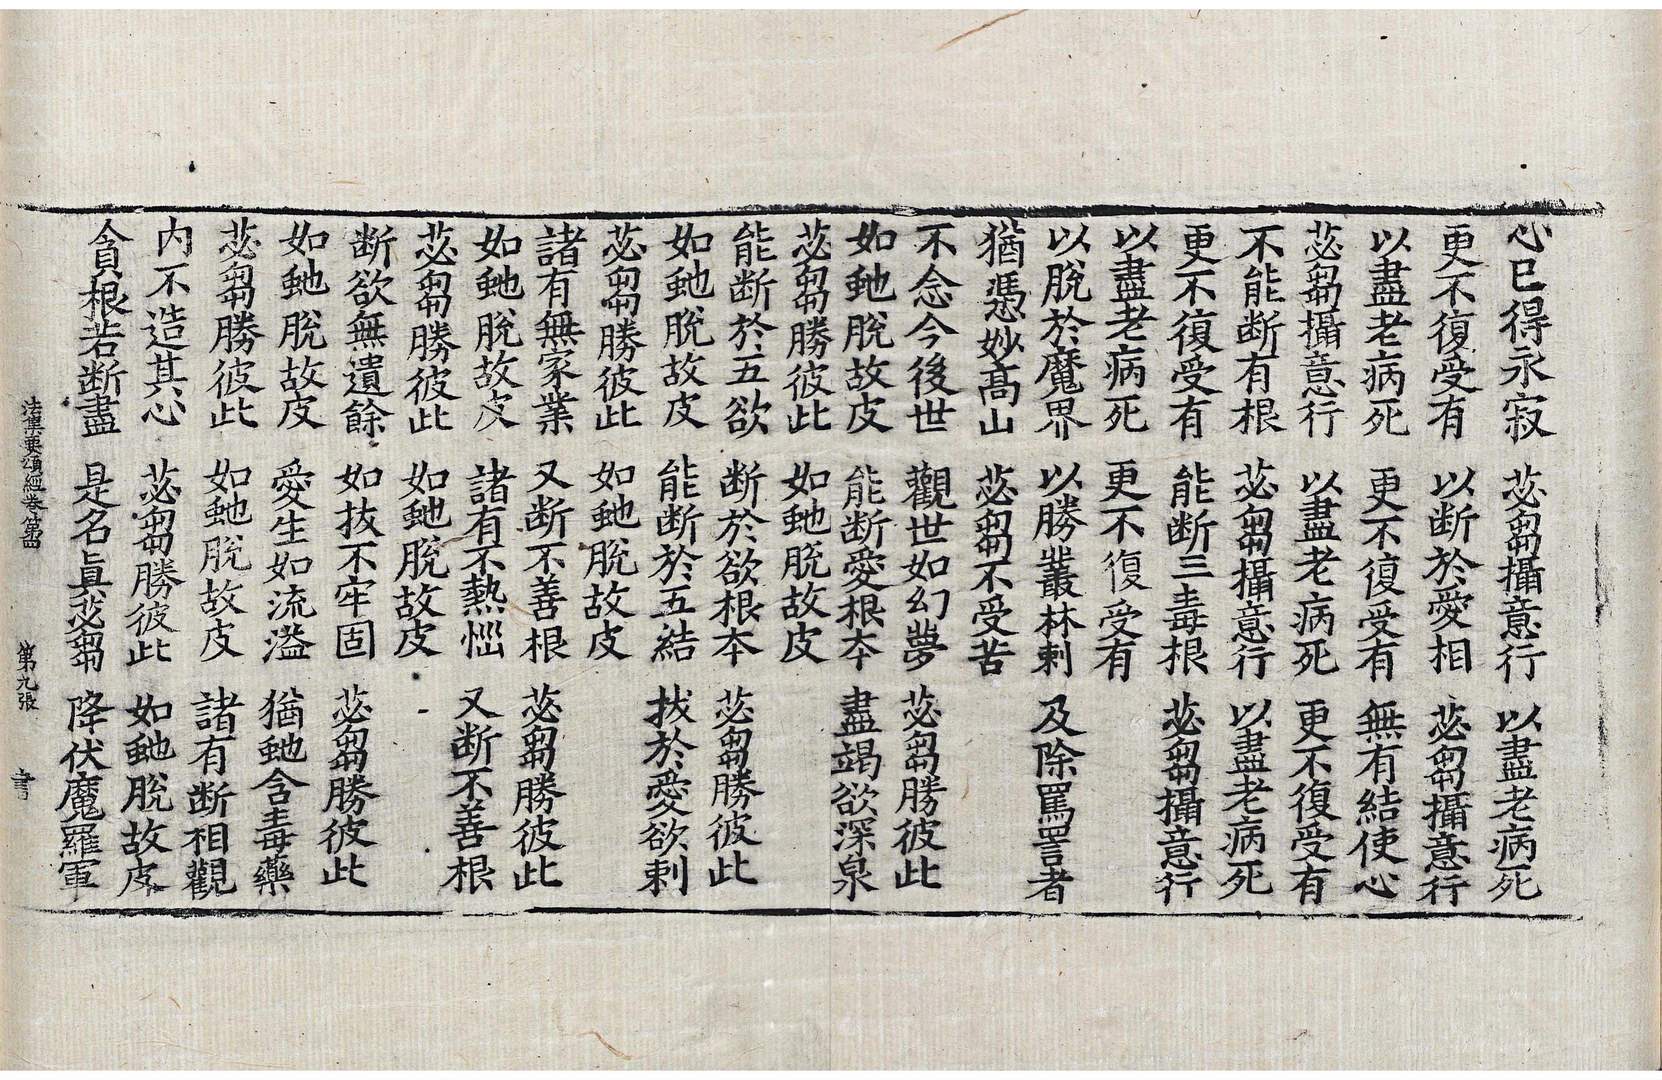 心已得永寂 苾芻攝意行 以盡老病死
更不復受有 以断於愛相 苾芻攝意行
以盡老病死 更不復受有 無有結使心
苾芻攝意行 以盡老病死 更不復受有
不能断有根 苾芻攝意行 以盡老病死
更不復受有 能断三毒根 苾芻攝意行
以盡老病死 更不復受有
以脫於魔界 以勝叢林刺 及除罵詈者
猶憑妙高山 苾芻不受苦
不念今後世 觀世如幻夢 苾芻勝彼此
如虵脫故皮 能断愛根本 盡竭欲深泉
苾芻勝彼此 如虵脫故皮
能断於五欲 断於欲根本 苾芻勝彼此
如虵脫故皮 能断於五結 拔於愛欲刺
苾芻勝彼此 如虵脫故皮
諸有無家業 又断不善根 苾芻勝彼此
如虵脫故皮 諸有不熱惱 又断不善根
苾芻勝彼此 如虵脫故皮
断欲無遺餘 如拔不牢固 苾芻勝彼此
如虵脫故皮 愛生如流溢 猶虵含毒藥
苾芻勝彼此 如虵脫故皮 諸有断相觀
內不造其心 苾芻勝彼此 如虵脫故皮
貪根若断盡 是名眞苾芻 降伏魔羅軍
法集要頌經卷第四 第九張 書